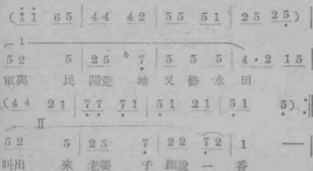 (i i 6 5 | 4 4 4 2 | 5 5 5 1 | 2 5 2 5)
1
5 2 5 | 2 5 6 7 | 5 5 5 | 4 · 2 1 5
軍與 民 開荒 地 又 修 水 田
(4 4 2 1 | 7 7 7 1 | 5 1 2 1 | 5 1 5) :
II
5 2 5 | 2 5 7 | 2 2 7 2 | 1 —
叫出 來 老婆 子 一 番